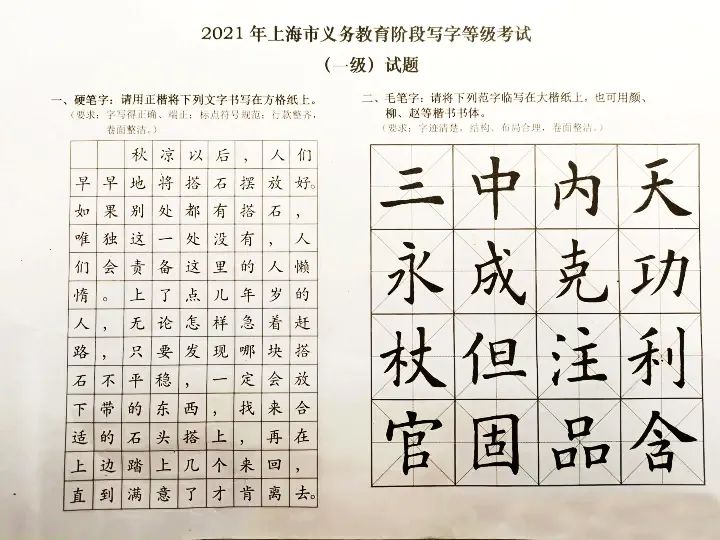 2021 年上海市义务教育阶段写字等级考试
（一级）试题
一、硬笔字：请用正楷将下列文字书写在方格纸上。
（要求：字写得正确、端正；标点符号规范；行款整齐，
卷面整洁。）
秋凉以后，人们
早早地将搭石摆放好。
如果别处都有搭石，
唯独这一处没有，人
们会责备这里的人懒
惰。上了点儿年岁的
人，无论怎样急着赶
路，只要发现哪块搭
石不平稳，一定会放
下带的东西，找来合
适的石头搭上，再在
上边踏上几个来回，
直到满意了才肯离去。
二、毛笔字：请将下列范字临写在大楷纸上，也可用颜、
柳、赵等楷书书体。
（要求：字迹清楚，结构、布局合理，卷面整洁。）
三中内天
永成克功
杖但注利
官固品含